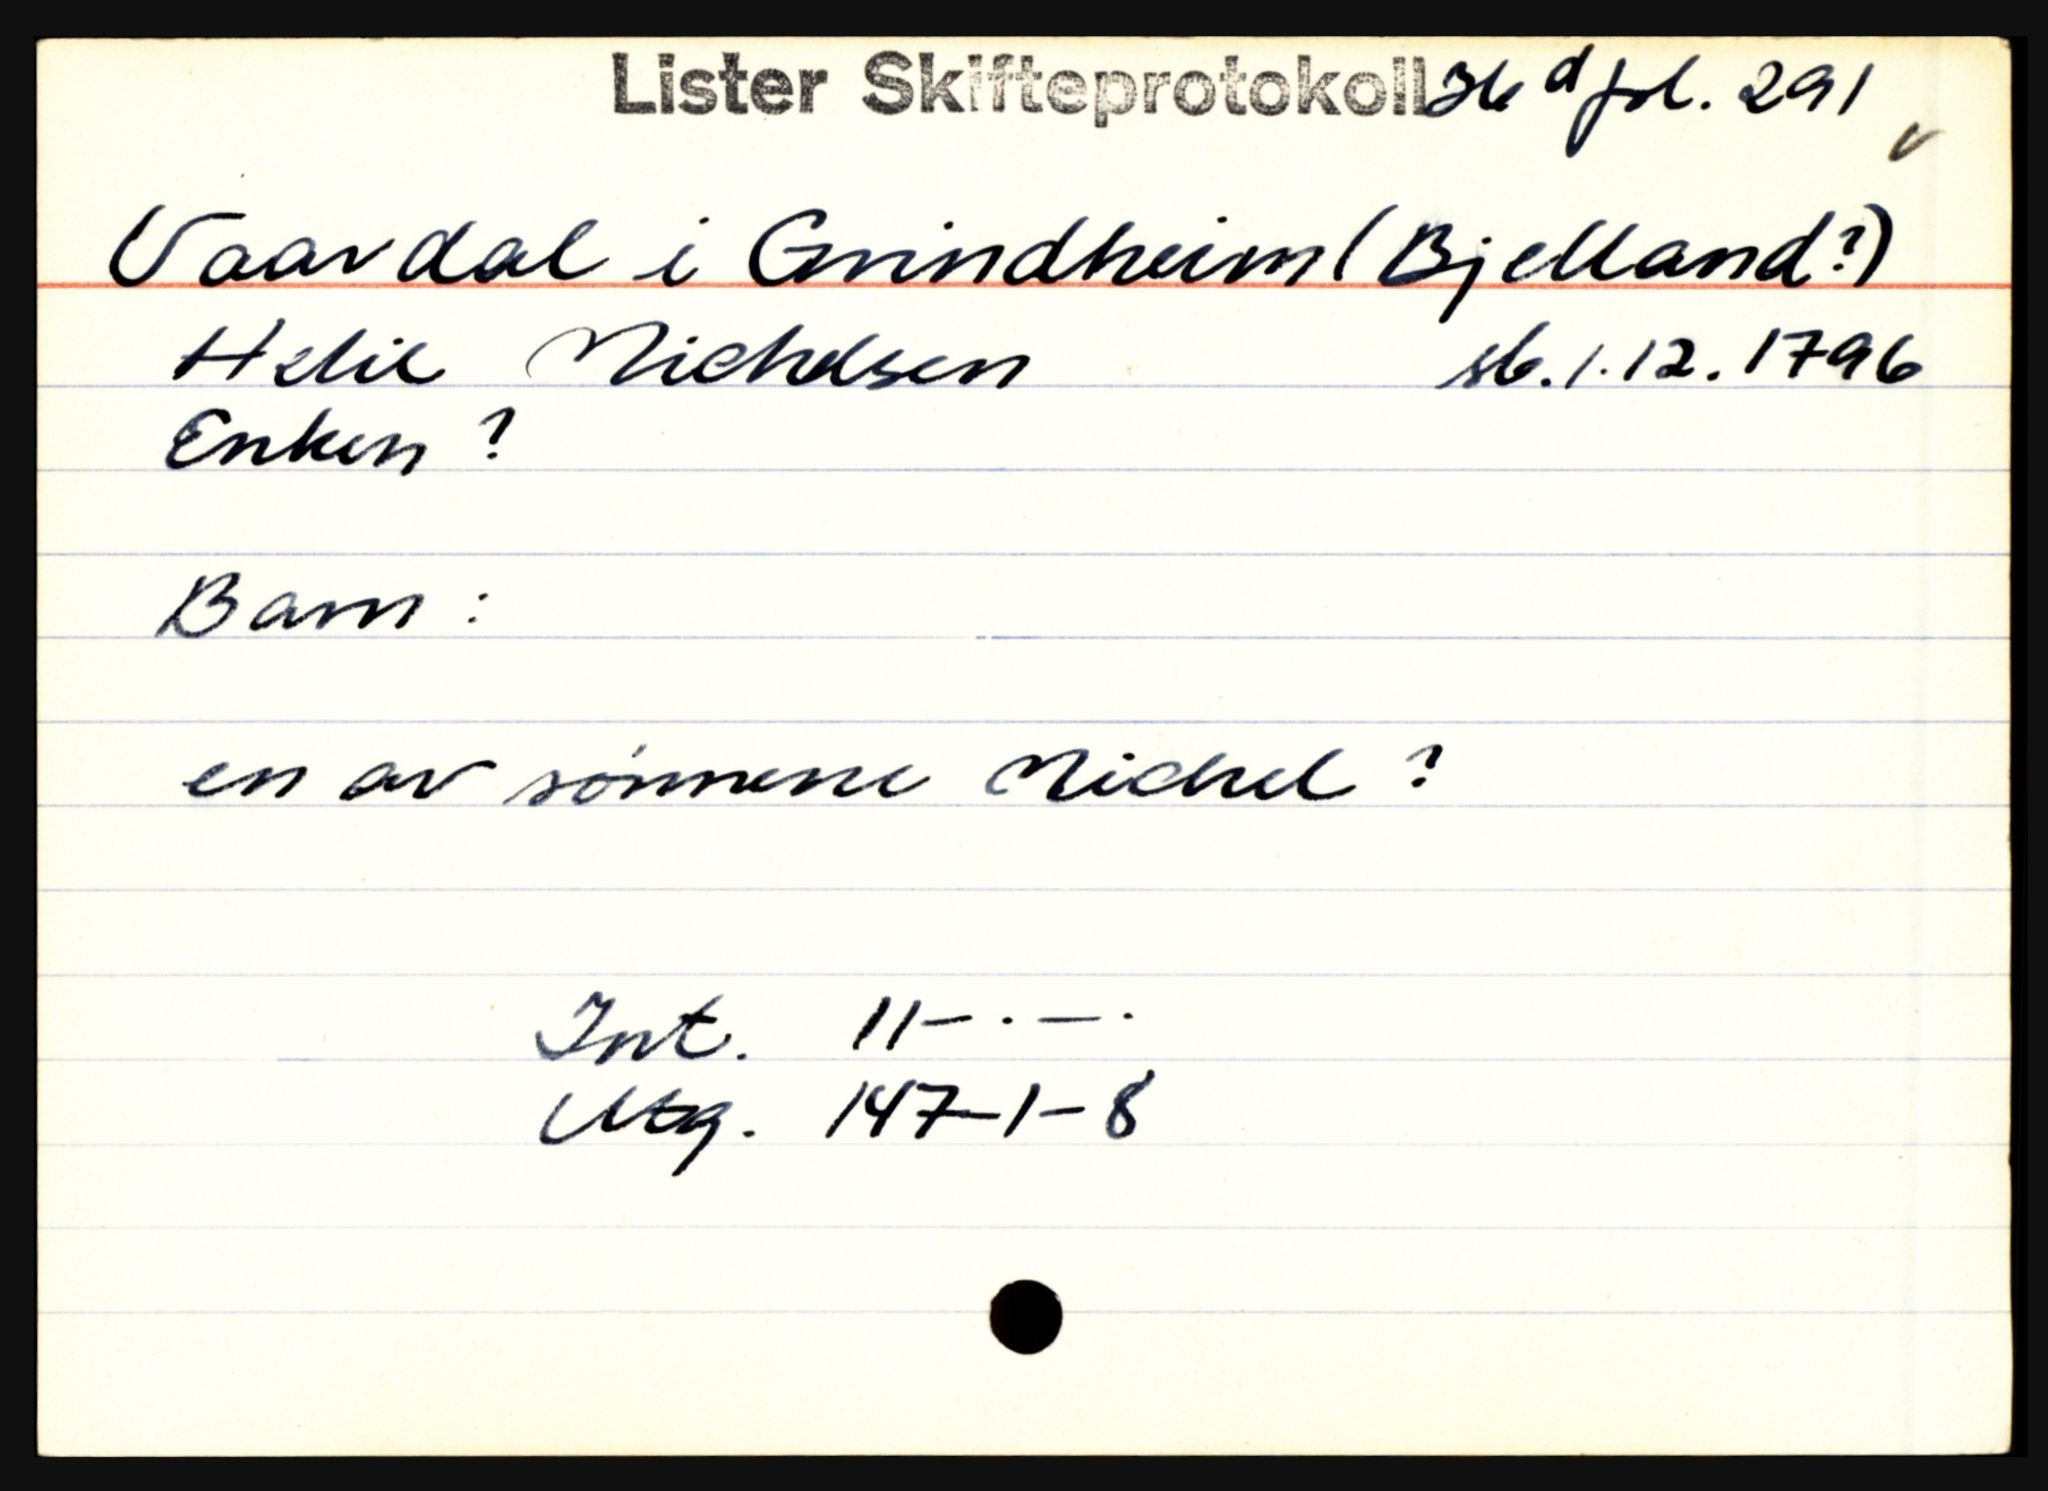 Lister Skifteprotokoll 36 d fol. 291
Vaardal i Grindheim (Bjelland?)
Helie Michelsen sb. 1.12.1796
Enken ?
Barn :
en av sönnene Michel ?
Int. 11-.-.
Utg. 147-1-8